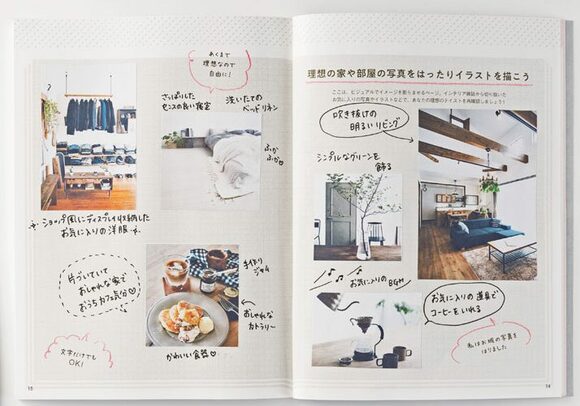 あくまで
理想なので
自由に!
さっぱりした
センスの良い寝室
洗いたての
ベッドリネン
ふか
ふか♡
ショップ風にディスプレイ収納した
お気に入りの洋服
片づいていて
おしゃれな家で
おうちカフェ気分♡
手作り
ジャム
おしゃれな
カトラリー
かわいい食器♡
文字だけでも
OK!
理想の家や部屋の写真をはったりイラストを描こう
ここは、ビジュアルでイメージを膨らませるページ。インテリア雑誌から切り抜いた
お気に入りの写真やイラストなどで、あなたの理想のテイストを再確認しましょう!
吹き抜けの
明るいリビング
シンプルなグリーンを
飾る
お気に入りのBGM
お気に入りの道具で
コーヒーをいれる
私はお城の写真を
はりました